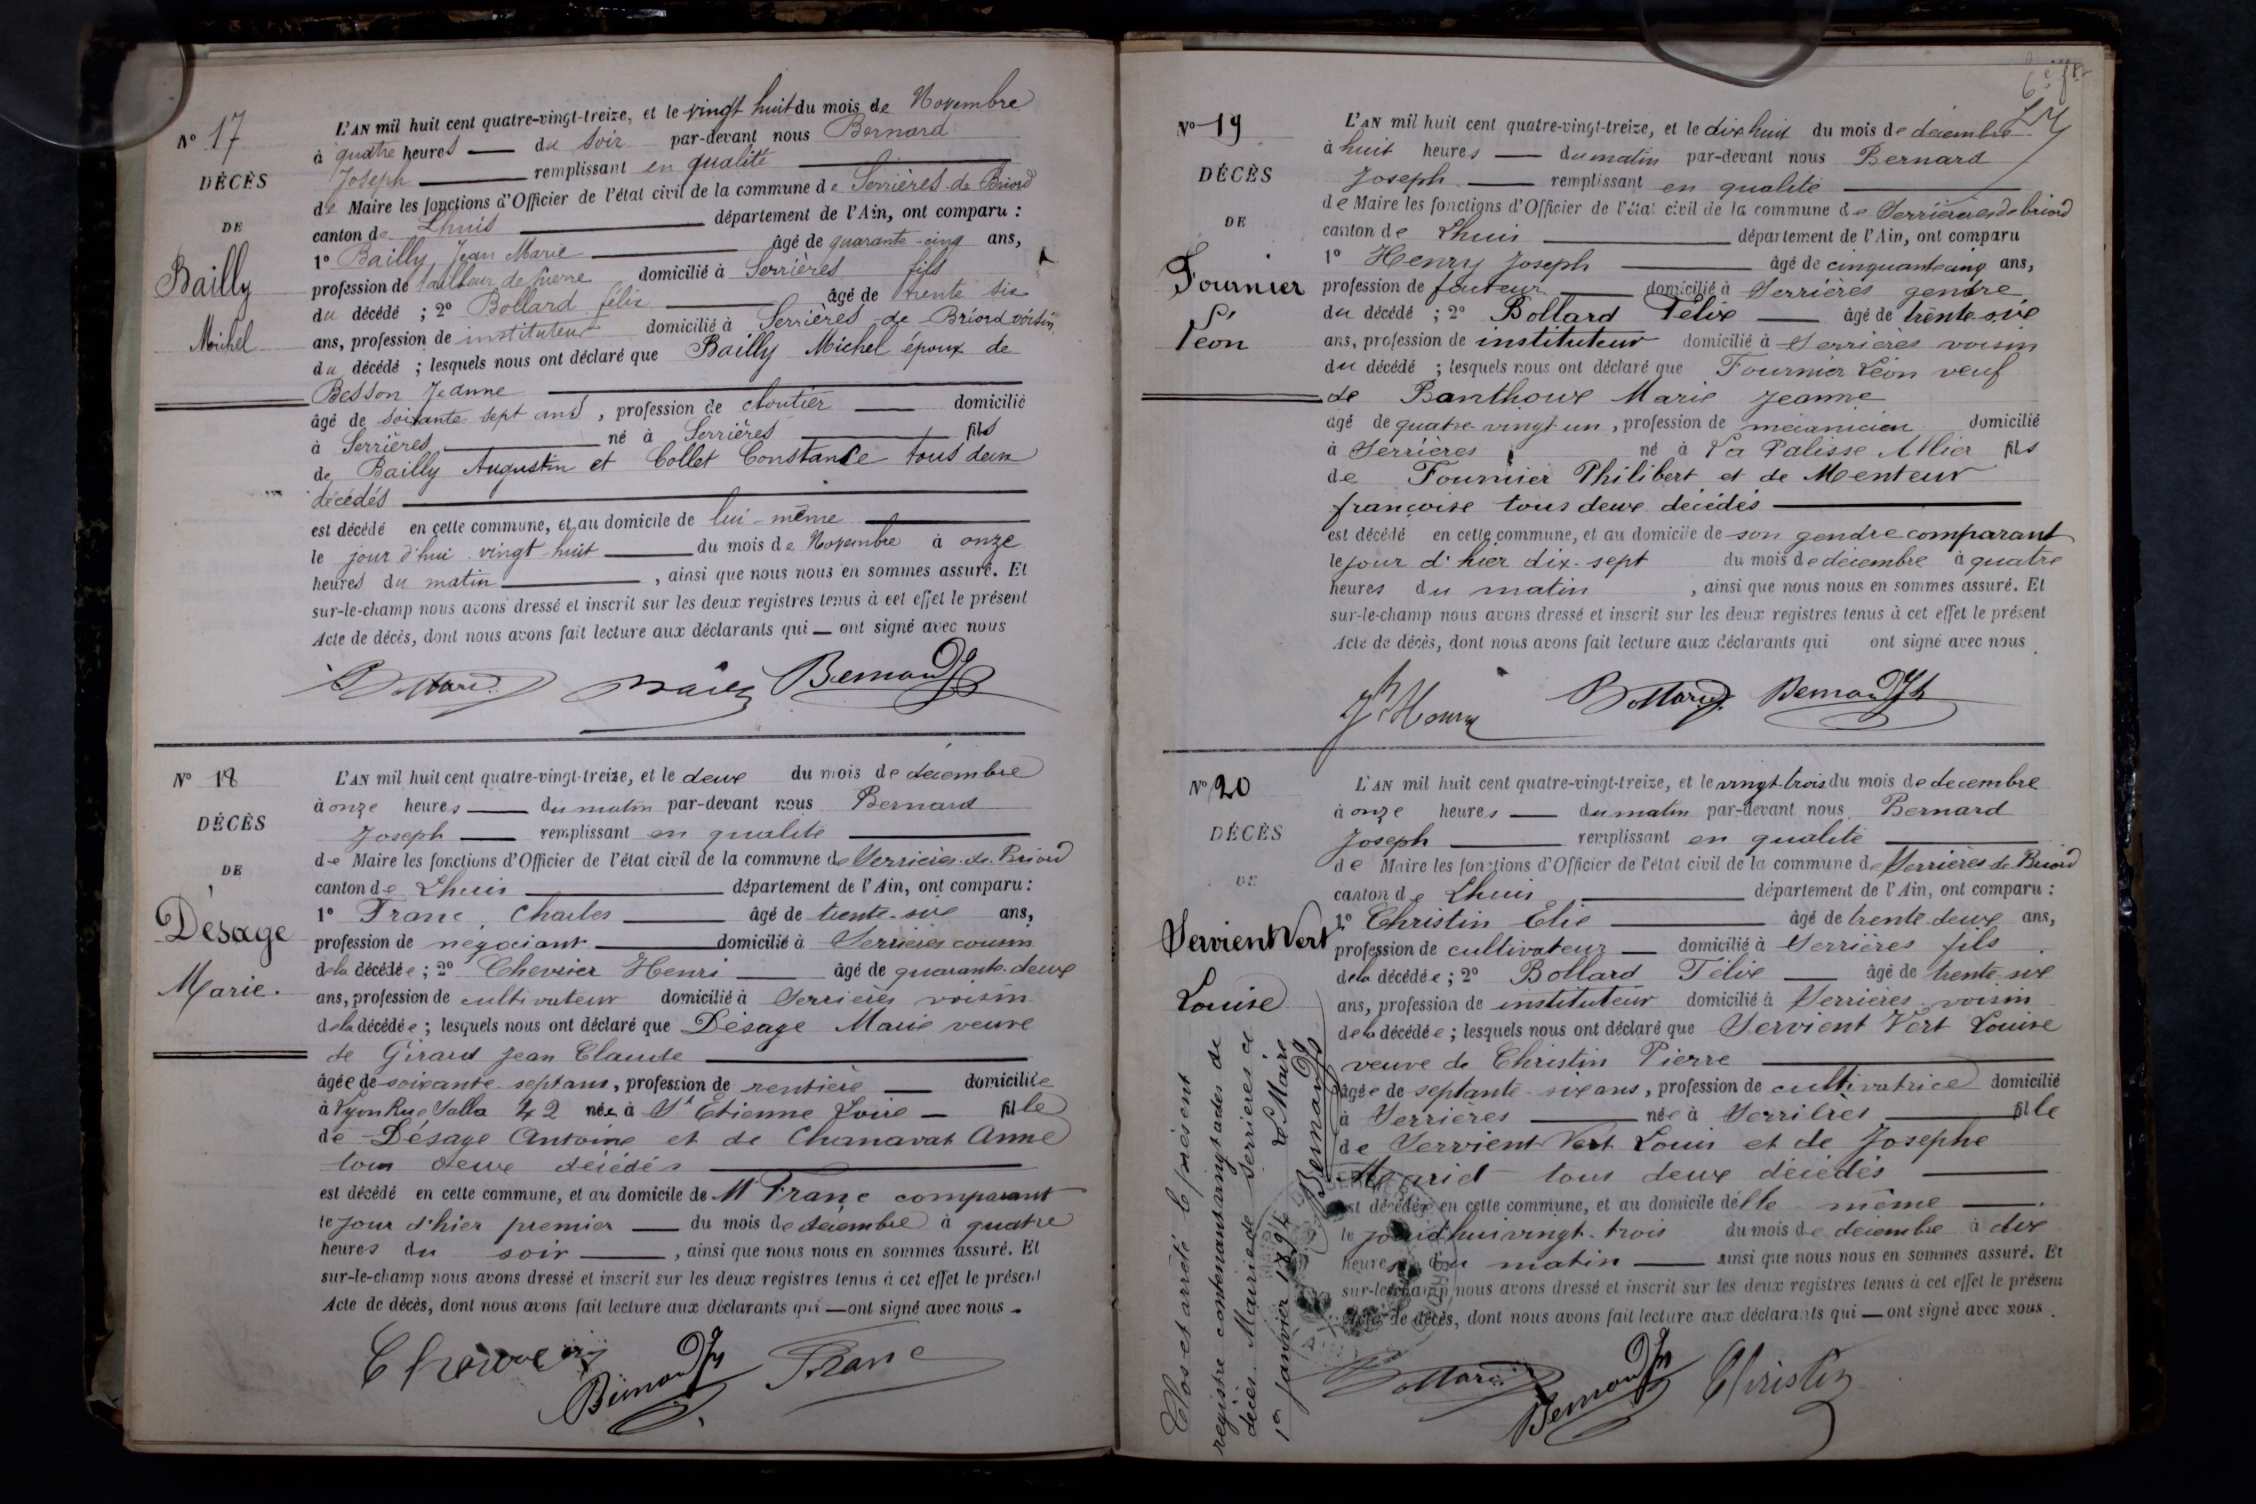 N° 17
DÉCÈS
DE
Bailly
Michel
L'AN mil huit cent quatre-vingt-treize, et le vingt huit du mois de Novembre
à quatre heures — du soir par-devant nous Bernard
Joseph — remplissant en qualité —
de Maire les fonctions d'Officier de l'état civil de la commune de Serrières de Briord
canton de Lhuis — département de l'Ain, ont comparu :
1° Bailly Jean Marie — âgé de quarante-cinq ans,
profession de tailleur de pierre domicilié à Serrières fils
du décédé ; 2° Bollard félix — âgé de trente six
ans, profession de instituteur domicilié à Serrières de Briord voisin
du décédé ; lesquels nous ont déclaré que Bailly Michel époux de
Besson Jeanne —
âgé de soixante sept ans, profession de cloutier — domicilié
à Serrières — né à Serrières — fils
de Bailly Augustin et Collet Constance tous deux
décédés —
est décédé en cette commune, et au domicile de lui-même —
le jour d'hui vingt huit — du mois de Novembre à onze
heures du matin —, ainsi que nous nous en sommes assuré. Et
sur-le-champ nous avons dressé et inscrit sur les deux registres tenus à cet effet le présent
Acte de décès, dont nous avons fait lecture aux déclarants qui — ont signé avec nous
Bollard Bailly Bernard J
N° 18
DÉCÈS
DE
Désage
Marie.
L'AN mil huit cent quatre-vingt-treize, et le deux du mois de décembre
à onze heures — du matin par-devant nous Bernard
Joseph — remplissant en qualité —
de Maire les fonctions d'Officier de l'état civil de la commune de Serrières de Briord
canton de Lhuis — département de l'Ain, ont comparu :
1° Franc Charles — âgé de trente-six ans,
profession de négociant — domicilié à Serrières cousin
de la décédée ; 2° Chevrier Henri — âgé de quarante-deux
ans, profession de cultivateur domicilié à Serrières voisin
de la décédée ; lesquels nous ont déclaré que Désage Marie veuve
de Girard Jean Claude —
âgée de soixante-sept ans, profession de rentière — domicilié
à Lyon Rue Salla 42 née à St Etienne Loire — fille
de Désage Antoine et de Chanavat Anne
tous deux décédés —
est décédé en cette commune, et au domicile de M Franc comparant
le jour d'hier premier — du mois de décembre à quatre
heures du soir —, ainsi que nous nous en sommes assuré. Et
sur-le-champ nous avons dressé et inscrit sur les deux registres tenus à cet effet le présent
Acte de décès, dont nous avons fait lecture aux déclarants qui — ont signé avec nous
Bernard J Franc
N° 19
DÉCÈS
DE
Fournier
Léon
L'AN mil huit cent quatre-vingt-treize, et le dix huit du mois de décembre
à huit heures — du matin par-devant nous Bernard
Joseph — remplissant en qualité —
de Maire les fonctions d'Officier de l'état civil de la commune de Serrières de briord
canton de Lhuis — département de l'Ain, ont comparu
1° Henry Joseph — âgé de cinquante cinq ans,
profession de fouteur — domicilié à Serrières gendre
du décédé ; 2° Bollard Félix — âgé de trente-six
ans, profession de instituteur domicilié à Serrières voisin
du décédé ; lesquels nous ont déclaré que Fournier Léon veuf
de Banthoux Marie Jeanne
âgé de quatre-vingt un, profession de mécanicien domicilié
à Serrières né à La Palisse Allier fils
de Fournier Philibert et de Menteur
françoise tous deux décédés —
est décédé en cette commune, et au domicile de son gendre comparant
le jour d'hier dix-sept du mois de décembre à quatre
heures du matin, ainsi que nous nous en sommes assuré. Et
sur-le-champ nous avons dressé et inscrit sur les deux registres tenus à cet effet le présent
Acte de décès, dont nous avons fait lecture aux déclarants qui ont signé avec nous
Jh Henry Bollard Bernard Jh
N° 20
DÉCÈS
DE
Servient Vert
Louise
L'AN mil huit cent quatre-vingt-treize, et le vingt-trois du mois de decembre
à onze heures — du matin par-devant nous Bernard
Joseph — remplissant en qualité —
de Maire les fonctions d'Officier de l'état civil de la commune de Serrières de Briord
canton de Lhuis — département de l'Ain, ont comparu :
1° Christin Elie — âgé de trente-deux ans,
profession de cultivateur — domicilié à Serrières fils
de la décédée ; 2° Bollard Félix — âgé de trente-six
ans, profession de instituteur domicilié à Serrières voisin
de la décédée ; lesquels nous ont déclaré que Servient Vert Louise
veuve de Christin Pierre —
âgée de septante-six ans, profession de cultivatrice domicilié
à Serrieres — née à Serrières — fille
de Servient Vert Louis et de Josephe
tous deux décédés —
est décédée en cette commune, et au domicile d'elle même —
le jourd'hui vingt-trois du mois de décembre à dix
heures du matin — ainsi que nous nous en sommes assuré. Et
sur-le-champ nous avons dressé et inscrit sur les deux registres tenus à cet effet le présent
Acte de décès, dont nous avons fait lecture aux déclarants qui — ont signé avec nous.
Bollard Bernard Jh Christin
Clos et arrêté le présent
registre contenant vingt actes de
décès. Mairie de Serrieres ce
1er janvier 1894 Le Maire
Bernard Jh